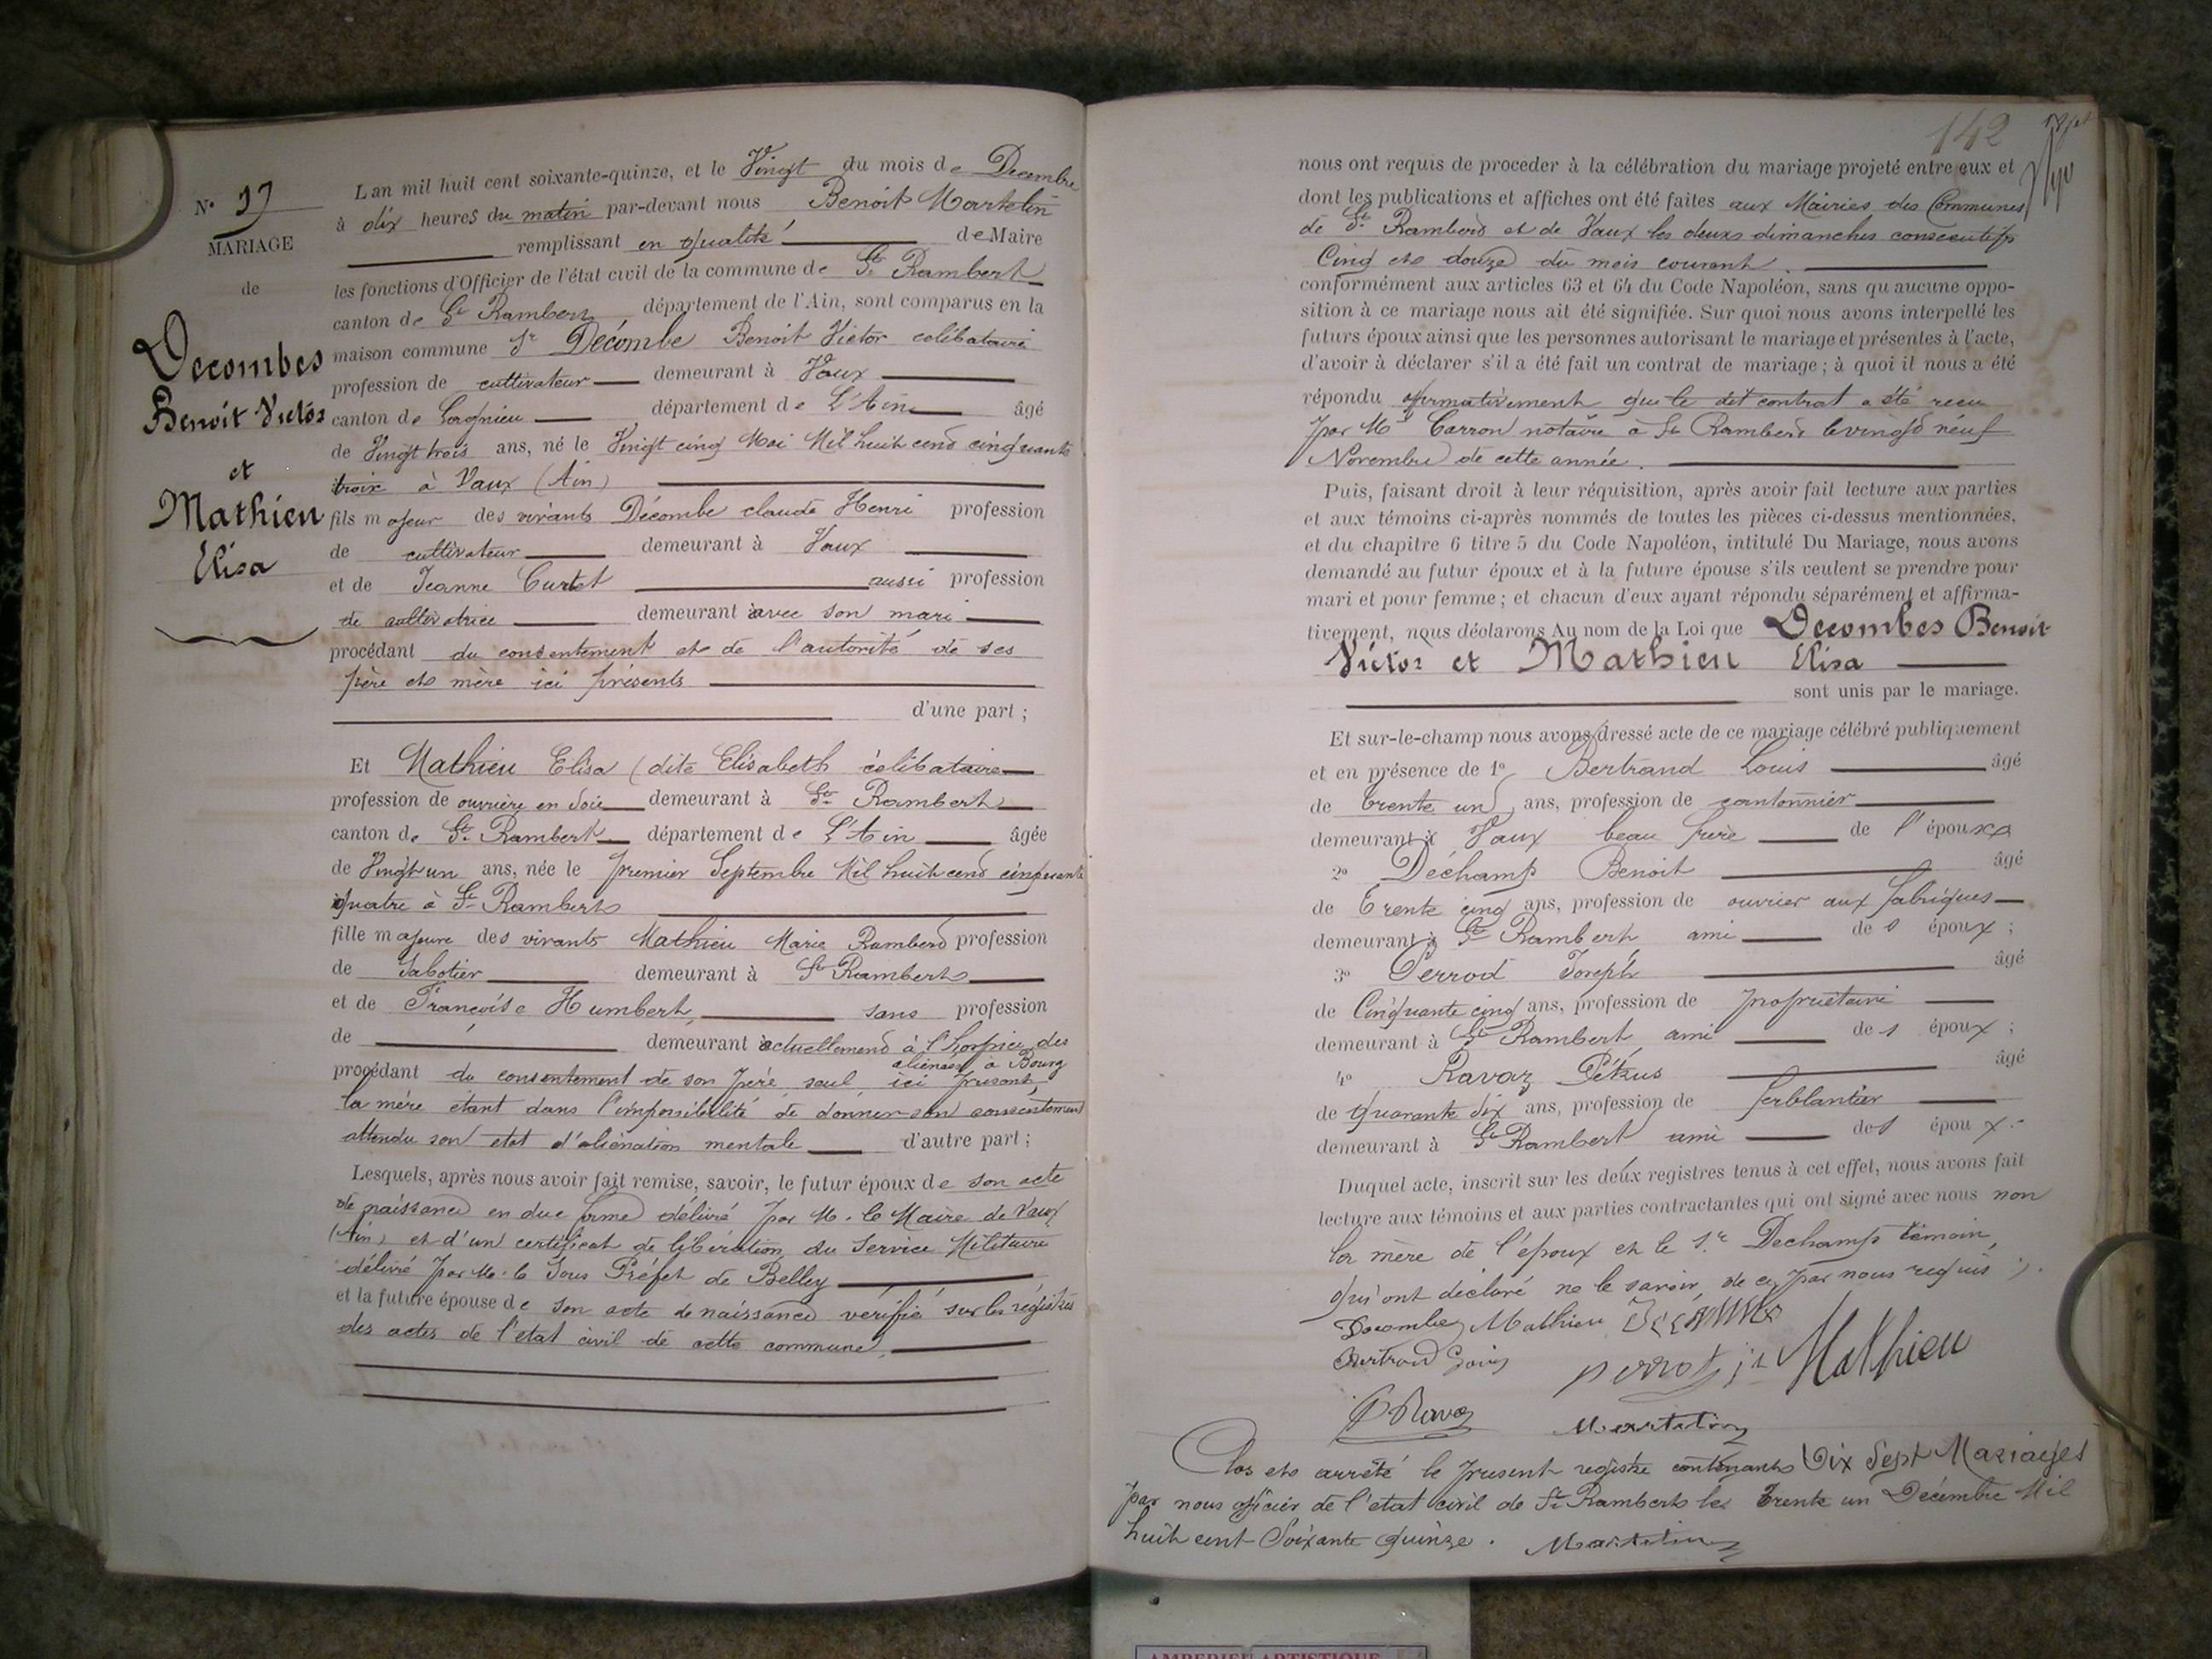 N° 17
MARIAGE
de
Decombes
Benoit Victor
et
Mathieu
Elisa
L'an mil huit cent soixante-quinze, et le Vingt du mois de Decembre
à dix heures du matin par-devant nous Benoit Martelin
remplissant en qualité de Maire
les fonctions d'Officier de l'état civil de la commune de St Rambert
canton de St Rambert département de l'Ain, sont comparus en la
maison commune Sr Décombe Benoit Victor celibataire
profession de cultivateur demeurant à Vaux
canton de Lagnieu département de L'Ain âgé
de Vingt trois ans, né le Vingt cinq Mai Mil huit cent cinquante
trois à Vaux (Ain)
fils majeur des vivants Décombe claude Henri profession
de cultivateur demeurant à Vaux
et de Jeanne Curtet aussi profession
de cultivatrice demeurant avec son mari
procédant du consentement et de l'autorité de ses
père et mère ici présents
d'une part ;
Et Mathieu Elisa (dite Elisabeth célibataire
profession de ouvrière en soie demeurant à St Rambert
canton de St Rambert département de L'Ain âgée
de Vingt un ans, née le premier Septembre Mil huit cent cinquante
quatre à St Rambert
fille majeure des vivants Mathieu Marie Rambert profession
de Sabotier demeurant à St Rambert
et de Françoise Humbert, sans profession
de demeurant actuellement à l'hospice des
aliénées à Bourg
procédant du consentement de son père seul ici présent,
la mère étant dans l'impossibilité de donner son consentement
attendu son etat d'aliénation mentale d'autre part ;
Lesquels, après nous avoir fait remise, savoir, le futur époux de son acte
de naissance en due forme délivré par M. le Maire de Vaux
(Ain) et d'un certificat de libération du Service Militaire
délivré par M. le Sous Préfet de Belley
et la future épouse de son acte de naissance vérifié sur les registres
des actes de l'etat civil de cette commune,
142
nous ont requis de proceder à la célébration du mariage projeté entre eux et
dont les publications et affiches ont été faites aux Mairies des Communes
de St Rambert et de Vaux les deux dimanches consecutifs
Cinq et douze du mois courant.
conformément aux articles 63 et 64 du Code Napoléon, sans qu aucune oppo-
sition à ce mariage nous ait été signifiée. Sur quoi nous avons interpellé les
futurs époux ainsi que les personnes autorisant le mariage et présentes à l'acte,
d'avoir à déclarer s'il a été fait un contrat de mariage ; à quoi il nous a été
répondu afirmativement que le dit contrat a été recu
par Me Carron notaire à St Rambert le vingt neuf
Novembre de cette année.
Puis, faisant droit à leur réquisition, après avoir fait lecture aux parties
et aux témoins ci-après nommés de toutes les pièces ci-dessus mentionnées,
et du chapitre 6 titre 5 du Code Napoléon, intitulé Du Mariage, nous avons
demandé au futur époux et à la future épouse s'ils veulent se prendre pour
mari et pour femme ; et chacun d'eux ayant répondu séparément et affirma-
tivement, nous déclarons Au nom de la Loi que Decombes Benoit
Victor et Mathieu Elisa
sont unis par le mariage.
Et sur-le-champ nous avons dressé acte de ce mariage célébré publiquement
et en présence de 1° Bertrand Louis âgé
de trente un ans, profession de cantonnier
demeurant à Vaux beau frère de l'époux
2° Déchamp Benoit âgé
de trente cinq ans, profession de ouvrier aux fabriques
demeurant à St Rambert ami de l époux ;
3° Perrod Joseph âgé
de Cinquante cinq ans, profession de propriétaire
demeurant à St Rambert ami des époux ;
4° Ravaz Pétrus âgé
de quarante six ans, profession de ferblantier
demeurant à St Rambert ami des époux.
Duquel acte, inscrit sur les deux registres tenus à cet effet, nous avons fait
lecture aux témoins et aux parties contractantes qui ont signé avec nous non
la mère de l'époux et le Sr Dechamps témoin,
qui ont déclaré ne le savoir de ce par nous requis.
Decombe Mathieu
Bertrand Louis perrod jh Mathieu
P Ravaz Martelin
Clos et arrêté le present registre contenant Dix Sept Mariages
par nous officier de l'etat civil de St Rambert le Trente un Décembre Mil
huit cent Soixante quinze. Martelin
AMBERIEU ARTISTIQUE